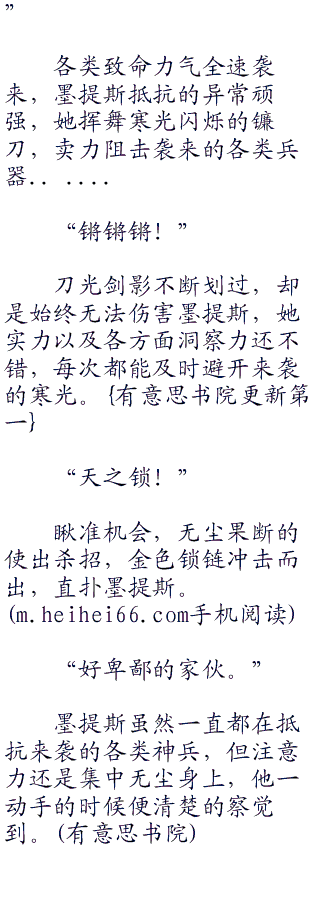 ”
各类致命力气全速袭
来，墨提斯抵抗的异常顽
强，她挥舞寒光闪烁的镰
刀，卖力阻击袭来的各类兵
器．．．．．．
“锵锵锵！”
刀光剑影不断划过，却
是始终无法伤害墨提斯，她
实力以及各方面洞察力还不
错，每次都能及时避开来袭
的寒光。{有意思书院更新第
一}
“天之锁！”
瞅准机会，无尘果断的
使出杀招，金色锁链冲击而
出，直扑墨提斯。
(m.heihei66.com手机阅读)
“好卑鄙的家伙。”
墨提斯虽然一直都在抵
抗来袭的各类神兵，但注意
力还是集中无尘身上，他一
动手的时候便清楚的察觉
到。(有意思书院)